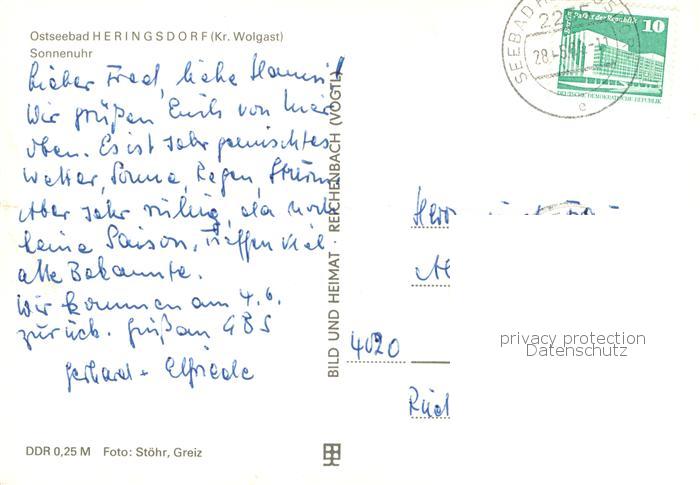 Ostseebad HERINGSDORF (Kr. Wolgast)
Sonnenuhr
Lieber Fred, liebe
Wir grüßen Euch von hier
oben. Es ist sehr gemischtes
Wetter, Sonne, Regen, Sturm
Aber sehr ruhig, da noch
keine Saison, treffen viel
alte Bekannte.
Wir kommen am 4.6.
zurück.
Gerhard + Elfriede
DDR 0,25 M Foto: Stöhr, Greiz
BILD UND HEIMAT · REICHENBACH (VOGTL)
SEEBAD
Berlin Palast der Republik 10
DEUTSCHE DEMOKRATISCHE REPUBLIK
Herr
4020
privacy protection
Datenschutz